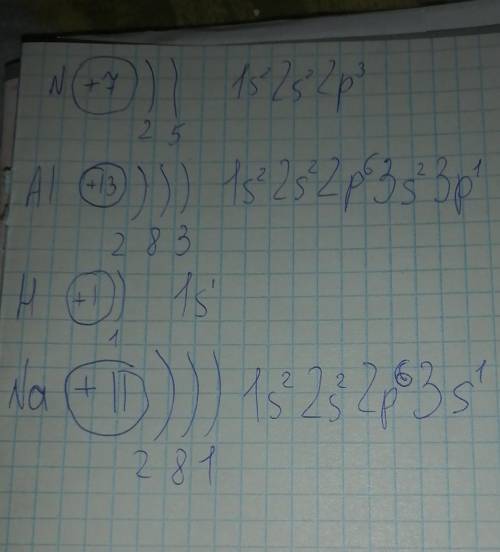 N +7 ) ) 1s²2s²2p³
2 5
Al +13 ) ) ) 1s²2s²2p⁶3s²3p¹
2 8 3
H +1 ) 1s¹
1
Na +11 ) ) ) 1s²2s²2p⁶3s¹
2 8 1